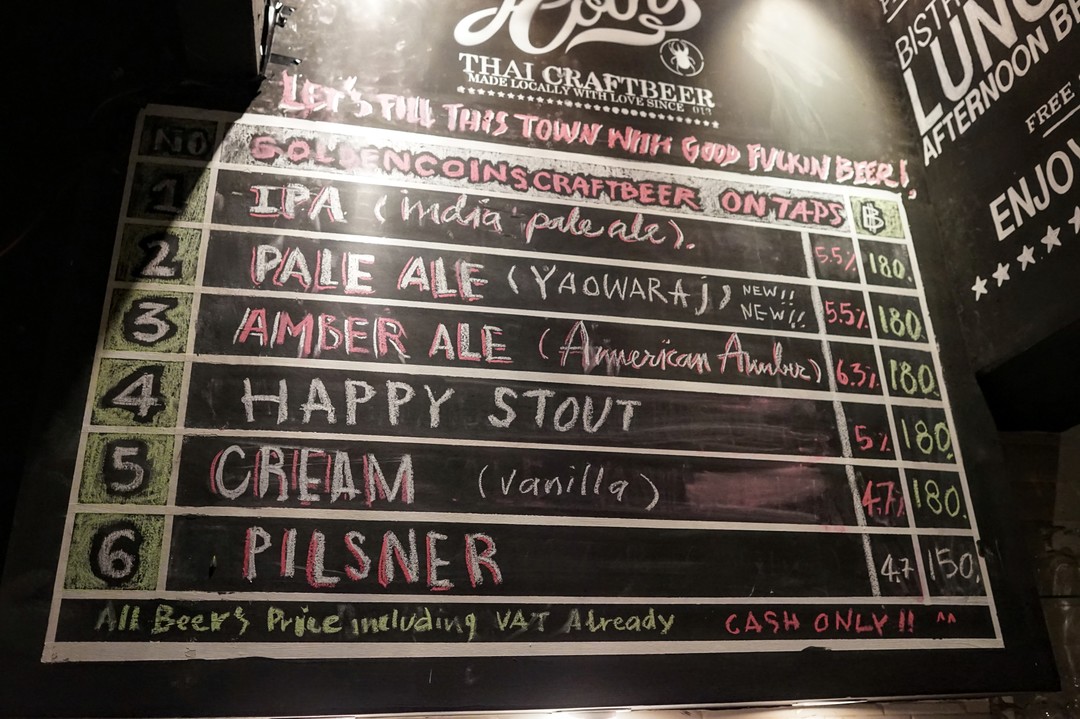 THAI CRAFTBEER
MADE LOCALLY WITH LOVE SINCE
LET'S FILL THIS TOWN WITH GOOD FUCKIN BEER!
NO GOLDENCOINS CRAFTBEER ON TAPS ฿
1 IPA (india pale ale). 5.5% 180.
2 PALE ALE (YAOWARAj) NEW!! NEW!! 5.5% 180.
3 AMBER ALE (American Amber) 6.3% 180.
4 HAPPY STOUT 5% 180.
5 CREAM (vanilla) 4.7% 180.
6 PILSNER 4.7 150.
All Beer's Price including VAT Already CASH ONLY!! ^^
AFTERNOON
FREE